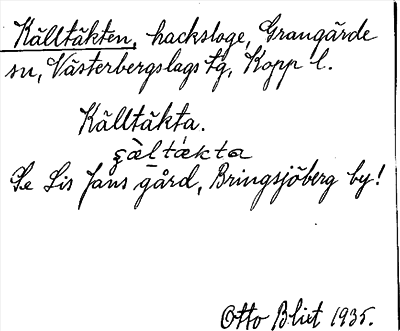 Källtäkten, hacksloge, Grangärde
sn, Västerbergslags tg, Kopp l.
Källtäkta.
çàltǽkta
Se Lis Jans gård, Bringsjöberg by!
Otto Blixt 1935.